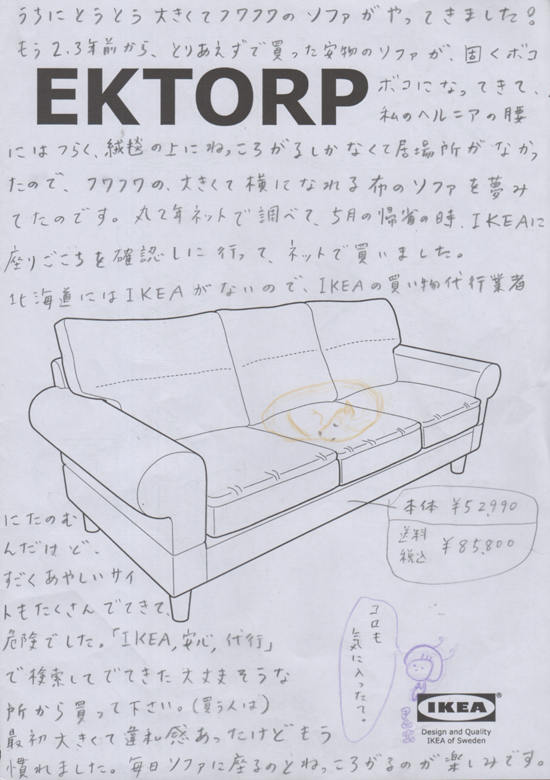 うちにとうとう大きくてフワフワのソファがやってきました。
もう2.3年前から、とりあえずで買った安物のソファが、固くボコ
EKTORP
ボコになってきて、
私のヘルニアの腰
にはつらく、絨毯の上にねっころがるしかなくて居場所がなかっ
たので、フワフワの、大きくて横になれる布のソファを夢み
てたのです。丸1年ネットで調べて、5月の帰省の時、IKEAに
座りごこちを確認しに行って、ネットで買いました。
北海道にはIKEAがないので、IKEAの買い物代行業者
にたのむ
んだけど、
すごくあやしいサイ
トもたくさんでてきて、
危険でした。「IKEA,安心,代行」
で検索してでてきた大丈夫そうな
所から買って下さい。(買う人は)
最初大きくて違和感あったけどもう
慣れました。毎日ソファに座るのとねっころがるのが楽しみです。
本体 ¥52,990
送料
税込 ¥85,800
コロも
気に入ったて。
IKEA®
Design and Quality
IKEA of Sweden